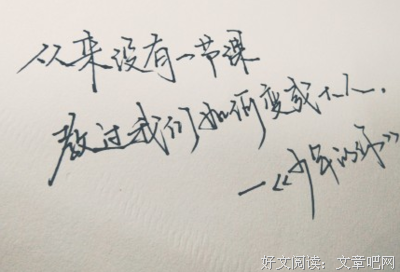 从来没有一节课
教过我们如何变成大人.
—《少年的你》
好文阅读：文章吧网